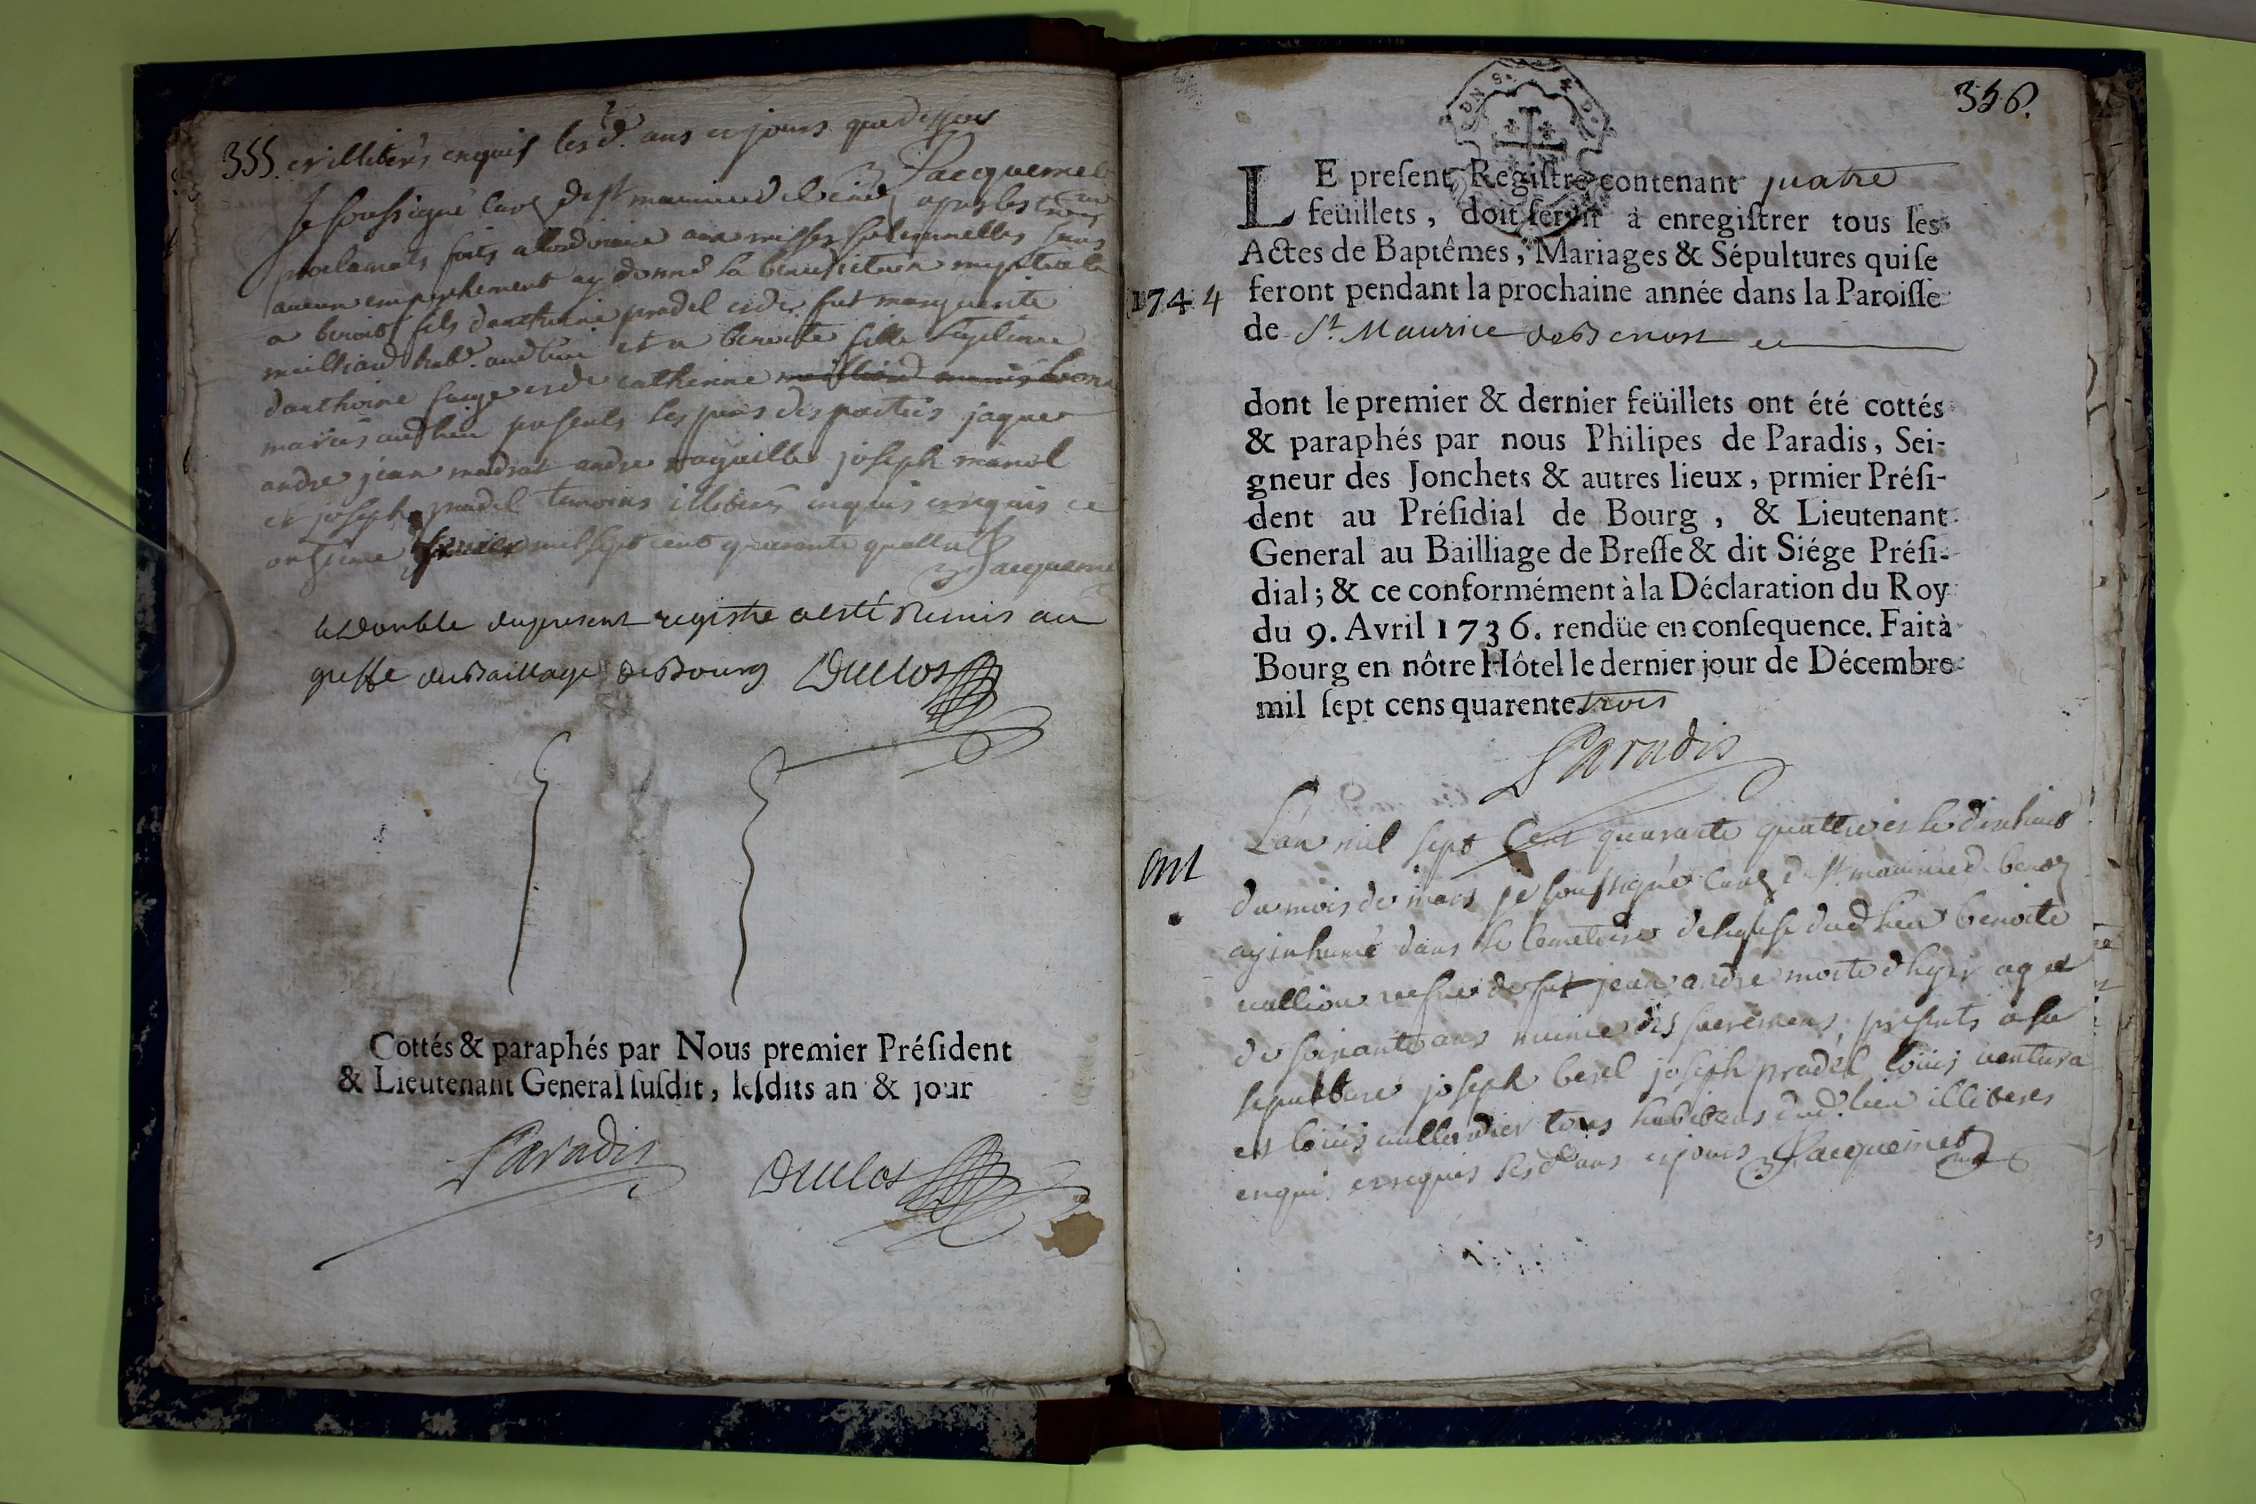 355. et illiterés enquis lesd. ans et jours que dessus
Jacquemet
Je soussigné curé de st maurice de apres les trois
proclamats faits a lordinaire aux messes solemnelles sans
aucun empechement ay donné la benediction nuptiale
a benoist fils danthoine pradel et de fut marguerite
milliand habt. audlieu et a benoite fille legitime
danthoine et de catherine
mariés audlieu presents les peres des parties jaques
andre jean andre joseph
et joseph pradel temoins illiterés enquis et requis ce
onzieme fevrier mil sept cent quarante quattre
Jacquemet
le double du present registre a esté remis au
greffe du Baillage de Bourg Duclos
Cottés & paraphés par Nous premier Préſident
& Lieutenant General ſuſdit, leſdits an & jour
Paradis
Duclos
356.
LE preſent Regiſtre contenant quatre
feüillets, doit ſervir à enregiſtrer tous les
Actes de Baptêmes, Mariages & Sépultures qui ſe
1744 feront pendant la prochaine année dans la Paroiſſe
de St. Maurice de Benost
dont le premier & dernier feüillets ont été cottés
& paraphés par nous Philipes de Paradis, Sei-
gneur des Jonchets & autres lieux, prmier Préſi-
dent au Préſidial de Bourg, & Lieutenant
General au Bailliage de Breſſe & dit Siége Préſi-
dial; & ce conformément à la Déclaration du Roy
du 9. Avril 1736. rendüe en conſequence. Fait à
Bourg en nôtre Hôtel le dernier jour de Décembre
mil ſept cens quarente trois
Paradis
Lan mil sept Cent quarante quattre et le dixhuit
mt du mois de mars je soussigné curé de st. maurice de
ay inhumé dans le cemetiere de leglise dud lieu benoite
vallion vefve de fut jean andre morte dhyer agee
de soixante ans munie des sacremens presents a sa
sepulture joseph berel joseph pradel loüis ventura
et loüis tous habitans dud. lieu illiteres
enquis et requis lesd. ans et jours Jacquemet